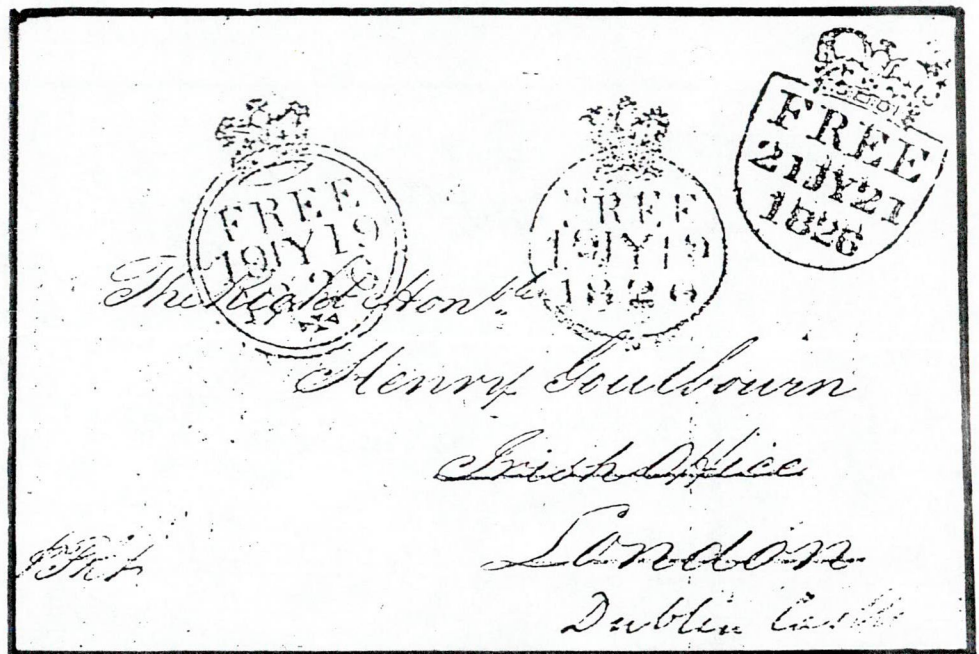 FREE
19 JY 19
FREE
19 JY 19
1826
FREE
21 JY 21
1826
The Right Honble
Henry Goulbourn
Irish Office
London
Dublin Castle